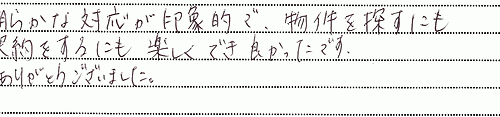 らかな対応が印象的で、物件を探すにも
契約をするにも楽しくでき良かったです。
ありがとうございました。